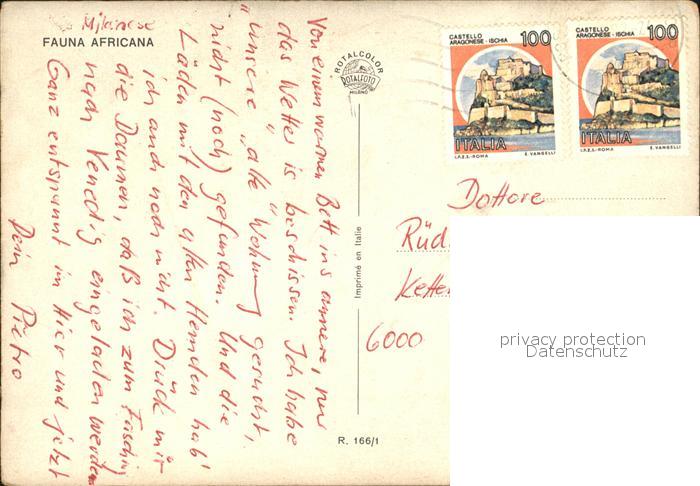 Milanese
FAUNA AFRICANA
Von einem warmen Bett ins andere, nur
das Wetter is beschissen. Ich habe
"unsere" alte Wohnung gesucht,
nicht (noch) gefunden. Und die
Läden mit den alten Hemden hab'
ich auch noch nicht. Drück mir
die Daumen, daß ich zum Fasching
nach Venedig eingeladen werde.
Ganz entspannt im Hier und Jetzt
Dein Pietro
ROTALCOLOR
ROTALFOTO
MILANO
Imprimé en Italie
R. 166/1
CASTELLO
ARAGONESE - ISCHIA
100
ITALIA
I.P.Z.S. - ROMA E. VANGELLI
CASTELLO
ARAGONESE - ISCHIA
100
ITALIA
I.P.Z.S. - ROMA E. VANGELLI
Dottore
Rüd
Kette
6000
privacy protection
Datenschutz